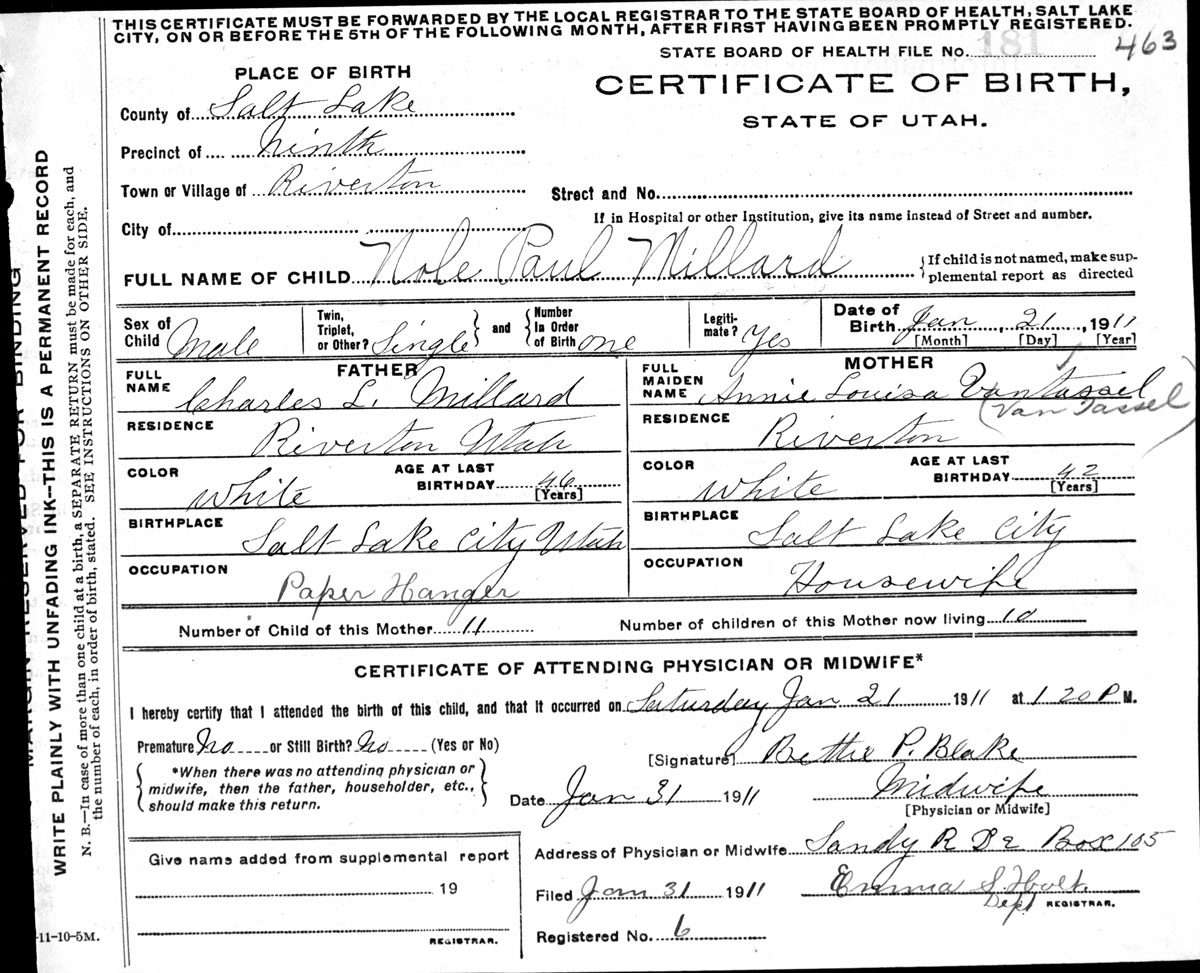 THIS CERTIFICATE MUST BE FORWARDED BY THE LOCAL REGISTRAR TO THE STATE BOARD OF HEALTH, SALT LAKE
CITY, ON OR BEFORE THE 5TH OF THE FOLLOWING MONTH, AFTER FIRST HAVING BEEN PROMPTLY REGISTERED.
STATE BOARD OF HEALTH FILE No. 181 463
PLACE OF BIRTH
CERTIFICATE OF BIRTH,
STATE OF UTAH.
County of Salt Lake
Precinct of Ninth
Town or Village of Riverton
Street and No.
If in Hospital or other Institution, give its name instead of Street and number.
City of
FULL NAME OF CHILD Nole Paul Millard
{If child is not named, make sup-
plemental report as directed
Sex of Child Male
Twin, Triplet, or Other? Single } and { Number In Order of Birth one
Legiti-mate? Yes
Date of Birth Jan, 21, 1911
[Month] [Day] [Year]
FATHER
FULL NAME Charles L. Millard
RESIDENCE Riverton Utah
COLOR White
AGE AT LAST BIRTHDAY 46
[Years]
BIRTHPLACE Salt Lake City Utah
OCCUPATION Paper Hanger
MOTHER
FULL MAIDEN NAME Annie Louisa Vantassel
(Van Tassel)
RESIDENCE Riverton
COLOR White
AGE AT LAST BIRTHDAY 42
[Years]
BIRTHPLACE Salt Lake City
OCCUPATION Housewife
Number of Child of this Mother 11
Number of children of this Mother now living 10
CERTIFICATE OF ATTENDING PHYSICIAN OR MIDWIFE*
I hereby certify that I attended the birth of this child, and that it occurred on Saturday Jan 21 1911 at 1 20 P M.
Premature No or Still Birth? No (Yes or No)
{ *When there was no attending physician or
midwife, then the father, householder, etc.,
should make this return. }
[Signature] Bettie P. Blake
Date Jan 31 1911
Midwife
[Physician or Midwife]
Give name added from supplemental report
19
REGISTRAR.
Address of Physician or Midwife Sandy R D 2 Box 105
Filed Jan 31 1911
Emma S. Holt
Dept REGISTRAR.
Registered No. 6
MARGIN RESERVED FOR BINDING
WRITE PLAINLY WITH UNFADING INK—THIS IS A PERMANENT RECORD
N. B.—In case of more than one child at a birth, a SEPARATE RETURN must be made for each, and
the number of each, in order of birth, stated. SEE INSTRUCTIONS ON OTHER SIDE.
-11-10-5M.